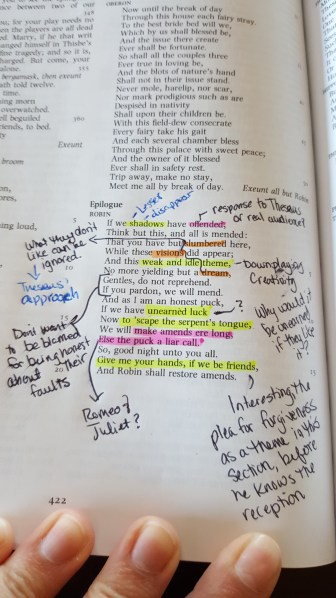 nce between two of our
yse; for your play needs no
en the players are all dead
d. Marry, if he that writ
anged himself in Thisbe's
ine tragedy; and so it is,
harged. But come, your
alone.
bergomask, then exeunt
ath told twelve.
time.
ming morn
overwatched.
ell beguiled
360
riends, to bed.
ty
Exeunt
broom
on,
ores,
ing loud,
OBERON
Now until the break of day
Through this house each fairy stray.
To the best bride bed will we,
Which by us shall blessed be,
And the issue there create
Ever shall be fortunate.
So shall all the couples three
Ever true in loving be,
And the blots of nature's hand
Shall not in their issue stand.
Never mole, harelip, nor scar,
Nor mark prodigious such as are
Despisèd in nativity
Shall upon their children be.
With this field-dew consecrate
Every fairy take his gait
And each several chamber bless
Through this palace with sweet peace;
And the owner of it blessed
Ever shall in safety rest.
Trip away, make no stay,
Meet me all by break of day.
Exeunt all but Robin
Epilogue
ROBIN
If we shadows have offended,
Think but this, and all is mended:
That you have but slumbered here,
While these visions did appear;
And this weak and idle theme,
No more yielding but a dream,
Gentles, do not reprehend.
If you pardon, we will mend.
And as I am an honest puck,
If we have unearned luck
Now to 'scape the serpent's tongue,
We will make amends ere long,
Else the puck a liar call.
So, good night unto you all.
Give me your hands, if we be friends,
And Robin shall restore amends.
- disappear
response to Theseus
or real audience?
What they don't
like can be
ignored.
Theseus'
approach
Downplaying
Creativity
?
Why would
it be unearned
if they like
it?
Don't want
to be blamed
for being honest
about their
faults
Romeo &
Juliet?
Interesting the
plea for forgiveness
as a theme in this
section, before
he knows the
reception
422